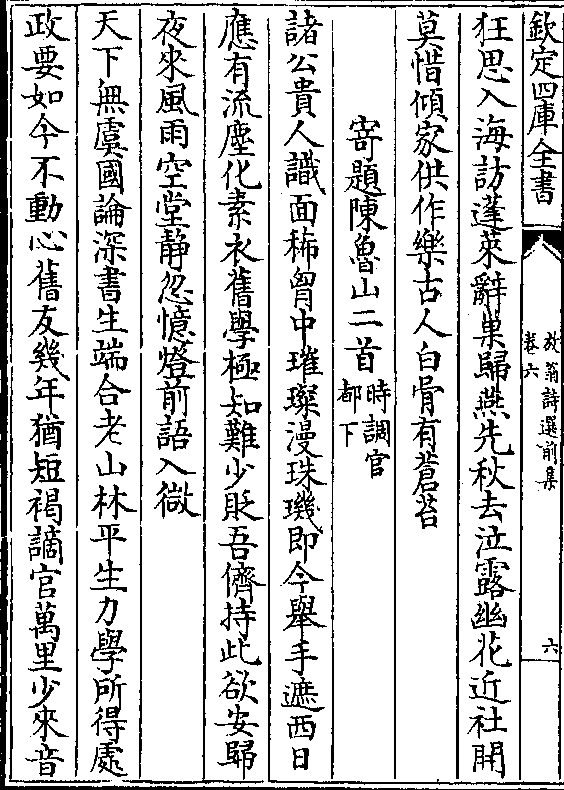 欽定四庫全書
放翁詩選前集
卷六
六
狂思入海訪蓬萊辭巢歸燕先秋去泣露幽花近社開
莫惜傾家供作樂古人白骨有蒼苔
寄題陳魯山二首時調官
都下
諸公貴人識面稀胷中璀璨漫珠璣即今舉手遮西日
應有流塵化素衣舊學極知難少貶吾儕持此欲安歸
夜來風雨空堂静忽憶燈前語入微
天下無虞國論深書生端合老山林平生力學所得處
政要如今不動心舊友幾年猶短褐謫官萬里少來音